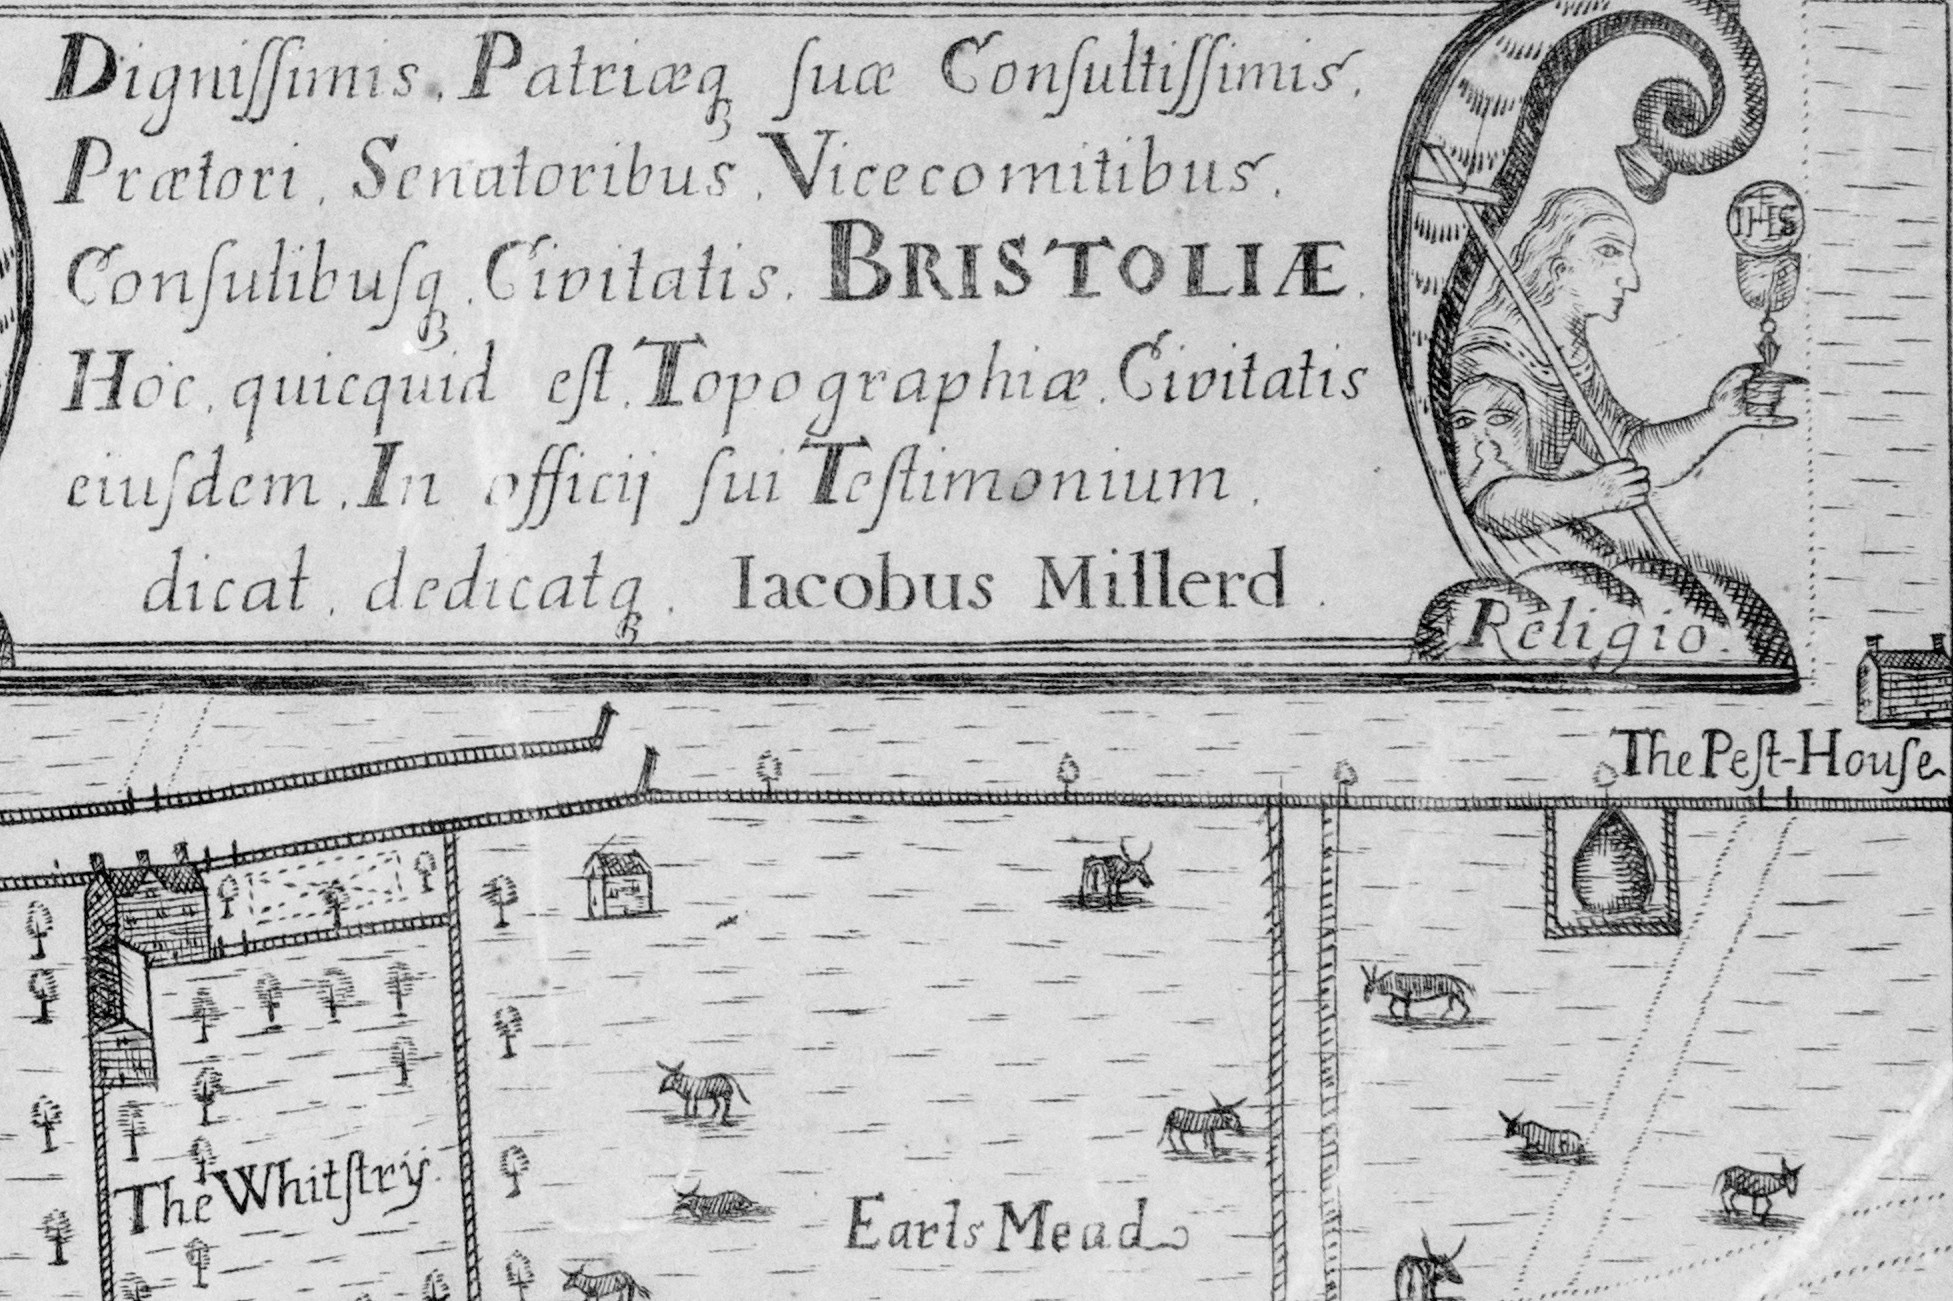 Digniſſimis, Patriæqꝫ ſuæ Conſultiſſimis,
Prætori, Senatoribus, Vicecomitibus,
Conſulibuſqꝫ, Civitatis, BRISTOLIÆ.
Hoc, quicquid eſt, Topographiæ, Civitatis
eiuſdem, In officij ſui Teſtimonium,
dicat, dedicatqꝫ, Iacobus Millerd.
IHS
Religio.
The Peſt-Houſe
The Whitſtry.
Earls Mead